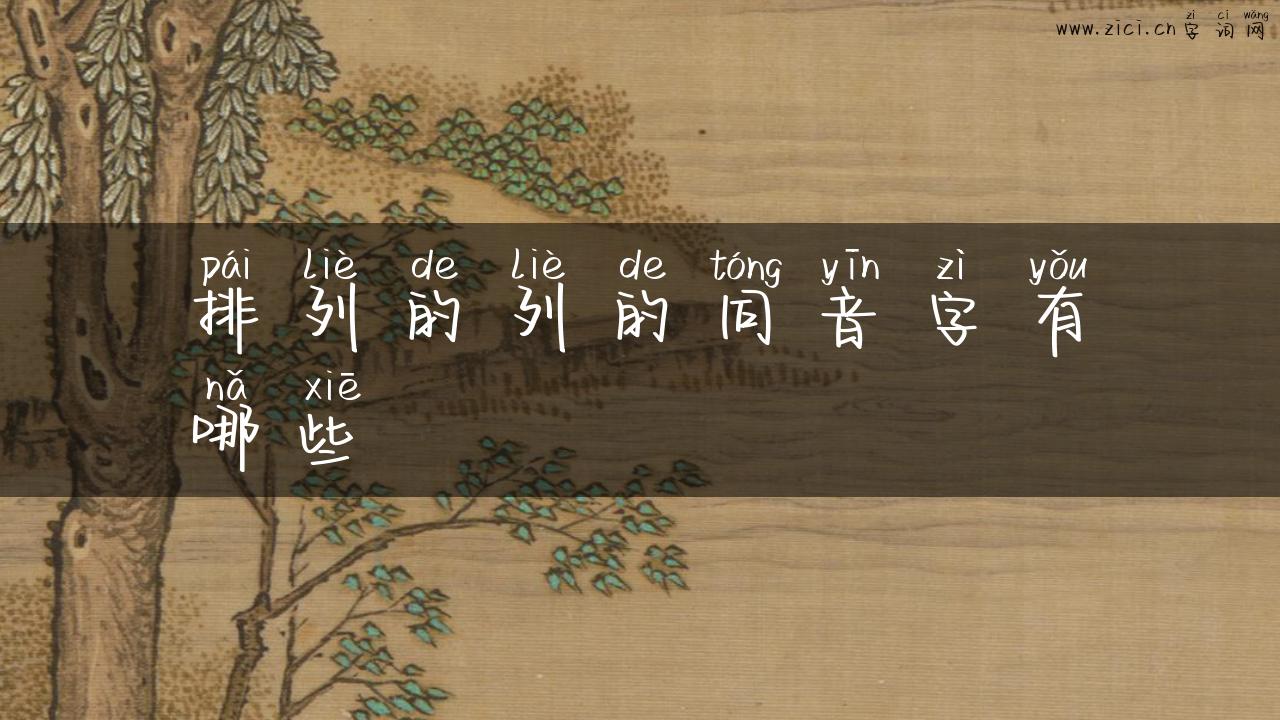 zì cí wǎng
www.zici.cn 字词网
pái liè de liè de tóng yīn zì yǒu
排列的列的同音字有
nǎ xiē
哪些